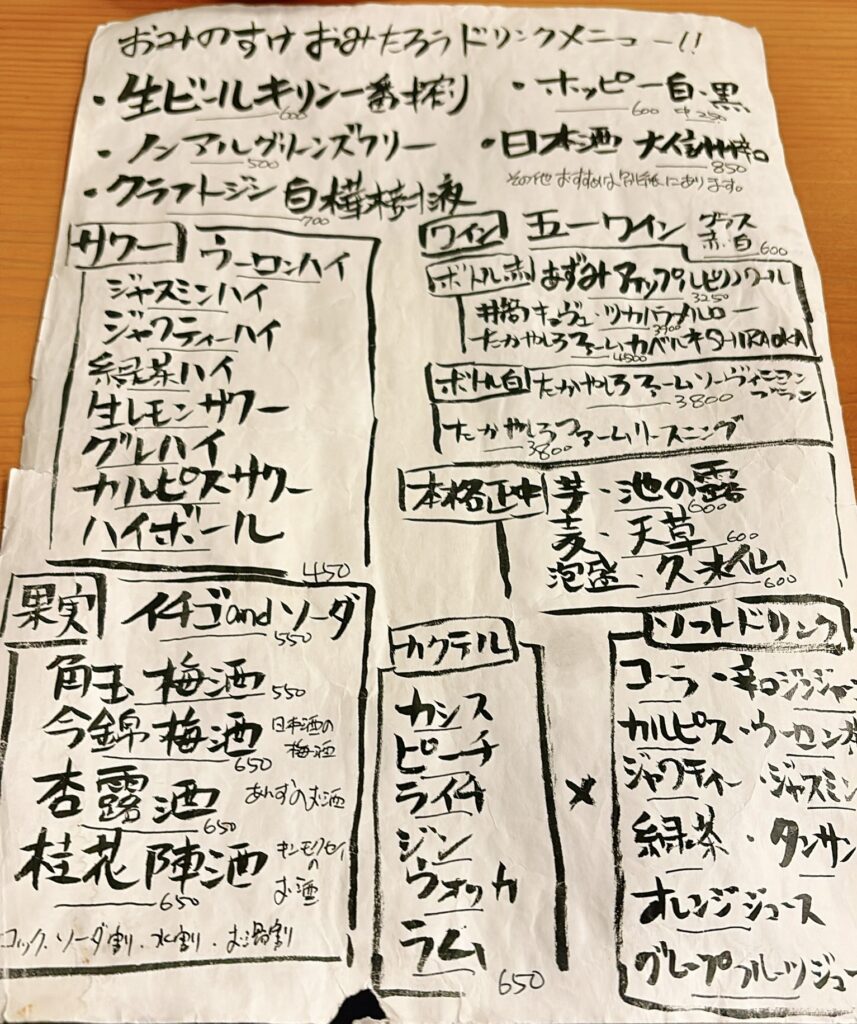 おみのすけ おみたろう ドリンクメニュー!!
・生ビールキリン一番搾り 600
・ホッピー 白・黒 600 中250
・ノンアルグリーンズフリー 500
・日本酒 大信州 850
その他おすすめは別紙にあります。
・クラフトジン 白樺樹液 700
サワー
ウーロンハイ
ジャスミンハイ
ジャワティーハイ
緑茶ハイ
生レモンサワー
グレハイ
カルピスサワー
ハイボール
450
ワイン 五一ワイン グラス 赤・白 600
ボトル赤 あずみアップルピノノワール 3250
井筒キュヴェ・ツカバラメルロー 3900
たかやしろファームカベルネSHIRAOKA 4500
ボトル白 たかやしろファームソーヴィニヨンブラン 3800
たかやしろファームリースニング 3800
本格正中 芋・池の露 600
麦・天草 600
泡盛・久米仙 600
果実 イチゴandソーダ 550
角玉梅酒 550
今錦梅酒 650 日本酒の梅酒
杏露酒 650 あんずのお酒
桂花陳酒 650 キンモクセイのお酒
ロック・ソーダ割・水割・お湯割
カクテル
カシス
ピーチ
ライチ
ジン
ウォッカ
ラム
650
×
ソフトドリンク
コーラ・辛口ジンジャー
カルピス・ウーロン茶
ジャワティー・ジャスミン
緑茶・タンサン
オレンジジュース
グレープフルーツジュー